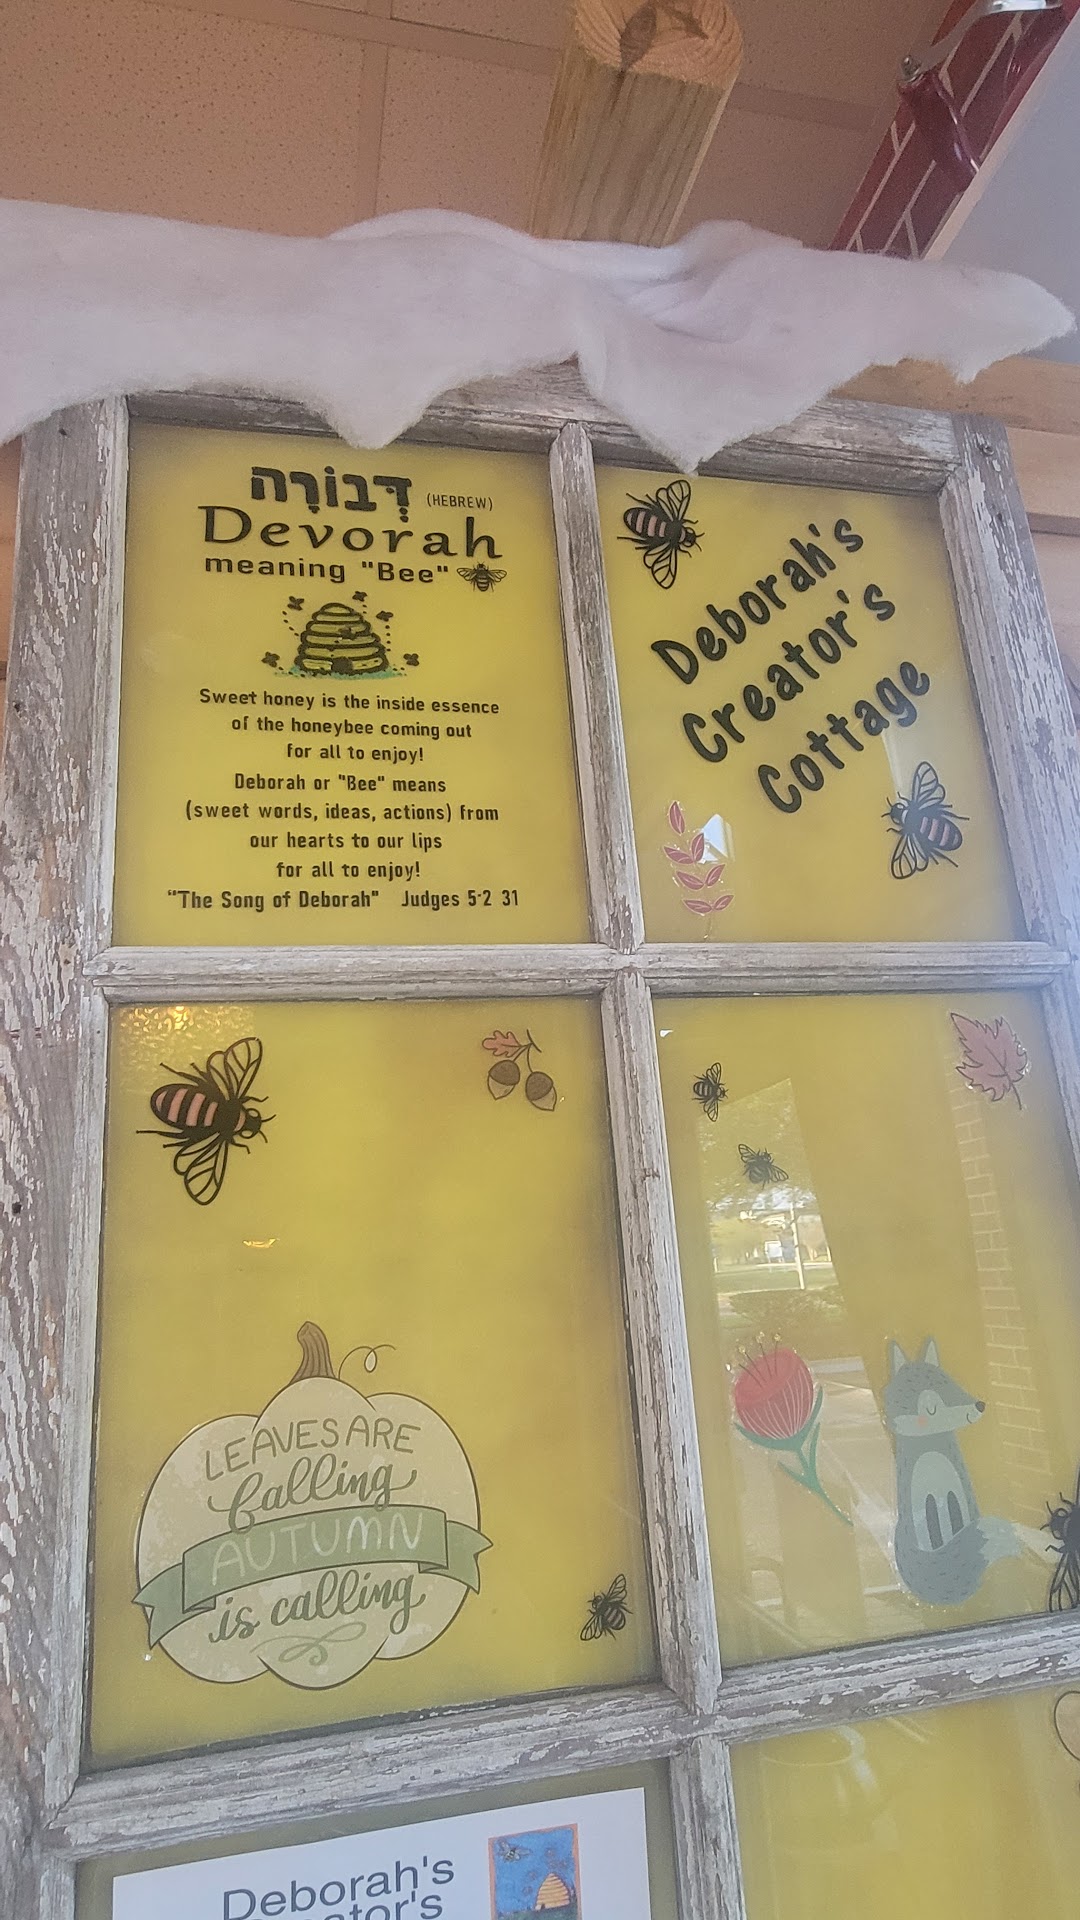 דְּבוֹרָה (HEBREW)
Devorah
meaning "Bee"
Sweet honey is the inside essence
of the honeybee coming out
for all to enjoy!
Deborah or "Bee" means
(sweet words, ideas, actions) from
our hearts to our lips
for all to enjoy!
"The Song of Deborah" Judges 5-2 31
Deborah's
Creator's
Cottage
LEAVES ARE
falling
AUTUMN
is calling
Deborah's